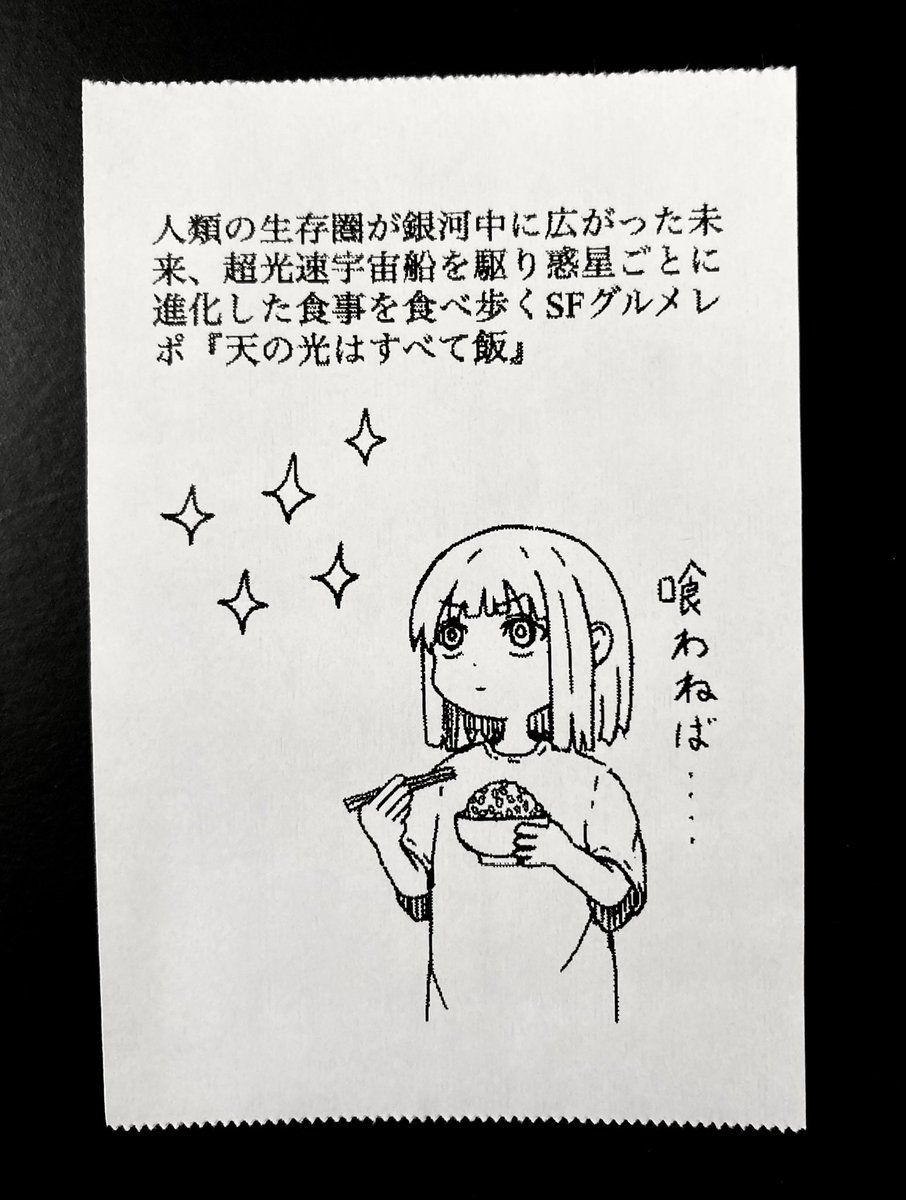 人類の生存圏が銀河中に広がった未
来、超光速宇宙船を駆り惑星ごとに
進化した食事を食べ歩くSFグルメレ
ポ『天の光はすべて飯』
喰わねば....